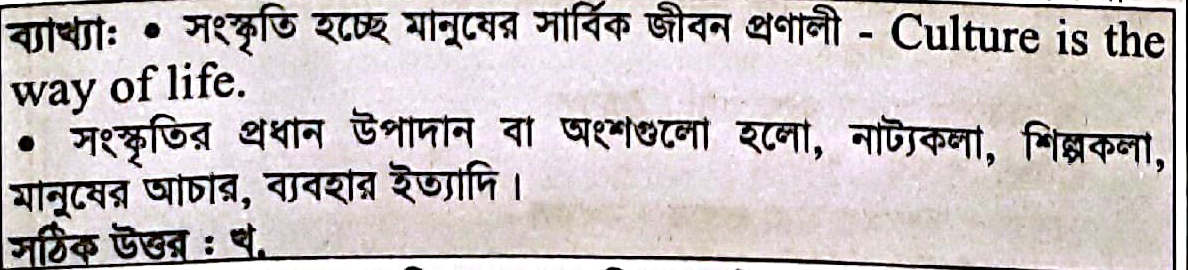 ব্যাখ্যা: • সংস্কৃতি হচ্ছে মানুষের সার্বিক জীবন প্রণালী - Culture is the
way of life.
• সংস্কৃতির প্রধান উপাদান বা অংশগুলো হলো, নাট্যকলা, শিল্পকলা,
মানুষের আচার, ব্যবহার ইত্যাদি।
সঠিক উত্তর : খ.